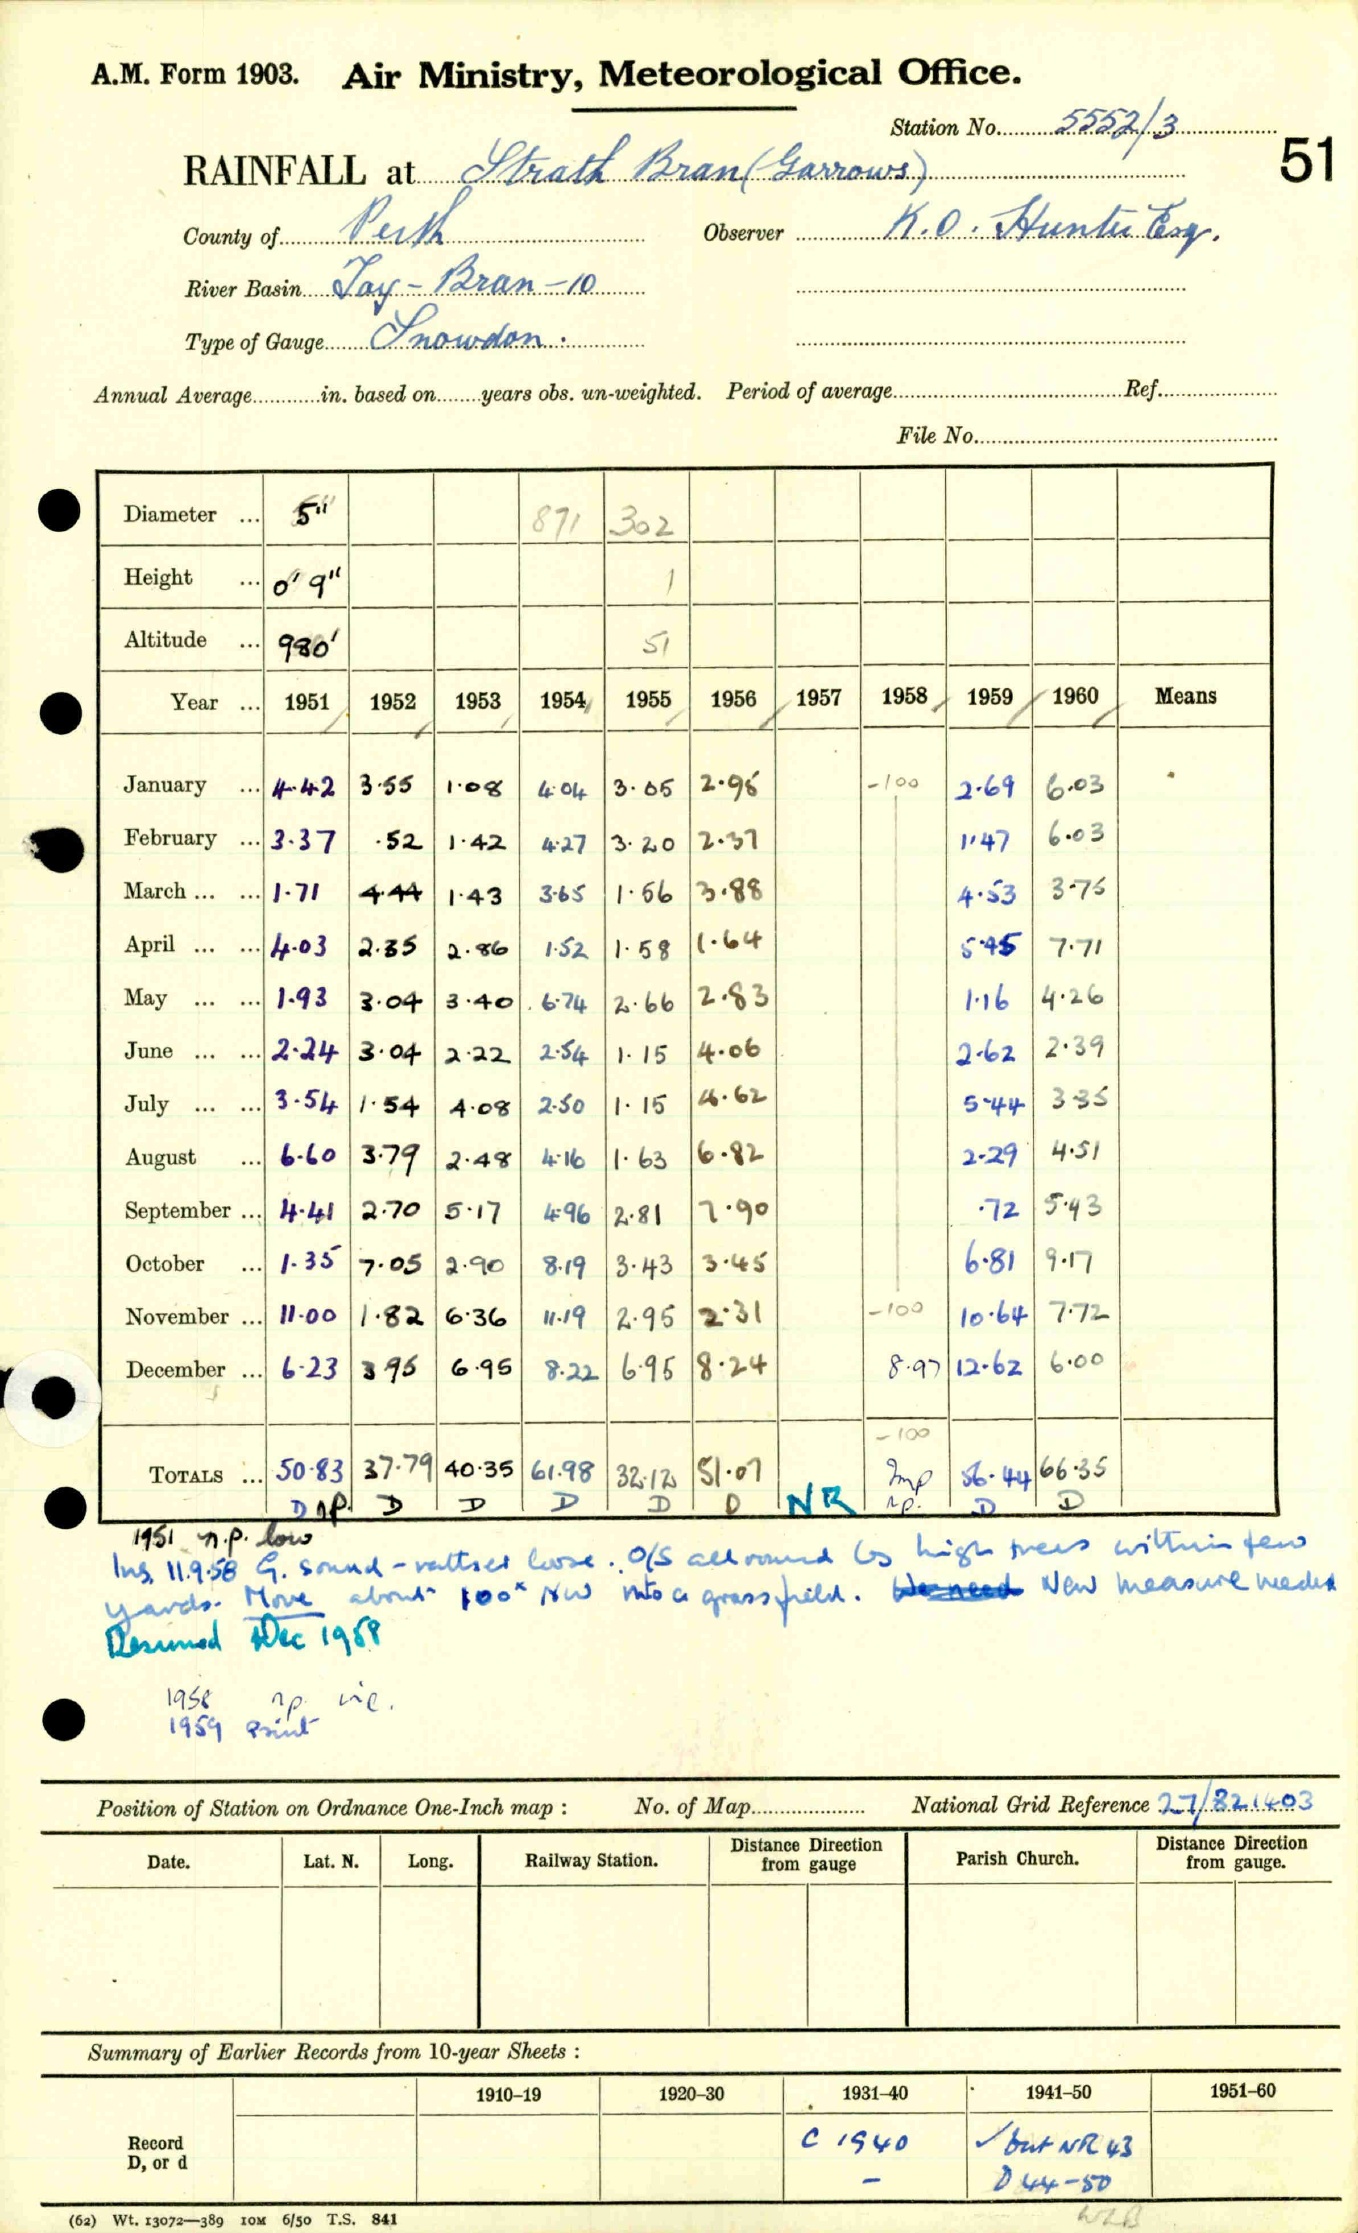 A.M. Form 1903. Air Ministry, Meteorological Office.
Station No. 5552/3
51
RAINFALL at Strath Bran (Garrows)
County of Perth Observer K.O. Hunter Esq.
River Basin Tay - Bran - 10
Type of Gauge Snowdon.
Annual Average in. based on years obs. un-weighted. Period of average Ref.
File No.
Diameter ... 5" 871 302
Height ... 0' 9" 1
Altitude ... 980' 51
Year ... 1951 1952 1953 1954 1955 1956 1957 1958 1959 1960 Means
January ... 4.42 3.55 1.08 4.04 3.05 2.95 -100 2.69 6.03
February ... 3.37 .52 1.42 4.27 3.20 2.37 1.47 6.03
March ... ... 1.71 4.44 1.43 3.65 1.56 3.88 4.53 3.75
April ... ... 4.03 2.35 2.86 1.52 1.58 1.64 5.45 7.71
May ... ... 1.93 3.04 3.40 6.74 2.66 2.83 1.16 4.26
June ... ... 2.24 3.04 2.22 2.54 1.15 4.06 2.62 2.39
July ... ... 3.54 1.54 4.08 2.50 1.15 4.62 5.44 3.35
August ... 6.60 3.79 2.48 4.16 1.63 6.82 2.29 4.51
September ... 4.41 2.70 5.17 4.96 2.81 7.90 .72 5.43
October ... 1.35 7.05 2.90 8.19 3.43 3.45 6.81 9.17
November ... 11.00 1.82 6.36 11.19 2.95 2.31 -100 10.64 7.72
December ... 6.23 3.95 6.95 8.22 6.95 8.24 8.97 12.62 6.00
-100
TOTALS ... 50.83 37.79 40.35 61.98 32.12 51.07 Imp 56.44 66.35
D np. D D D D D NR n.p. D D
1951 n.p. low
Ins. 11.9.58 G. sound - rather loose. O/S all round by high trees within few
yards. Move about 100x NW into a grass field. We need New measure needed
Resumed Dec 1958
1958 n.p. inc.
1959 print
Position of Station on Ordnance One-Inch map : No. of Map National Grid Reference 27/821403
Date. Lat. N. Long. Railway Station. Distance Direction from gauge Parish Church. Distance Direction from gauge.
Summary of Earlier Records from 10-year Sheets :
1910–19 1920–30 1931–40 1941–50 1951–60
Record C 1940 ✓ but NR 43
D, or d – D 44-50
(62) Wt. 13072—389 10M 6/50 T.S. 841